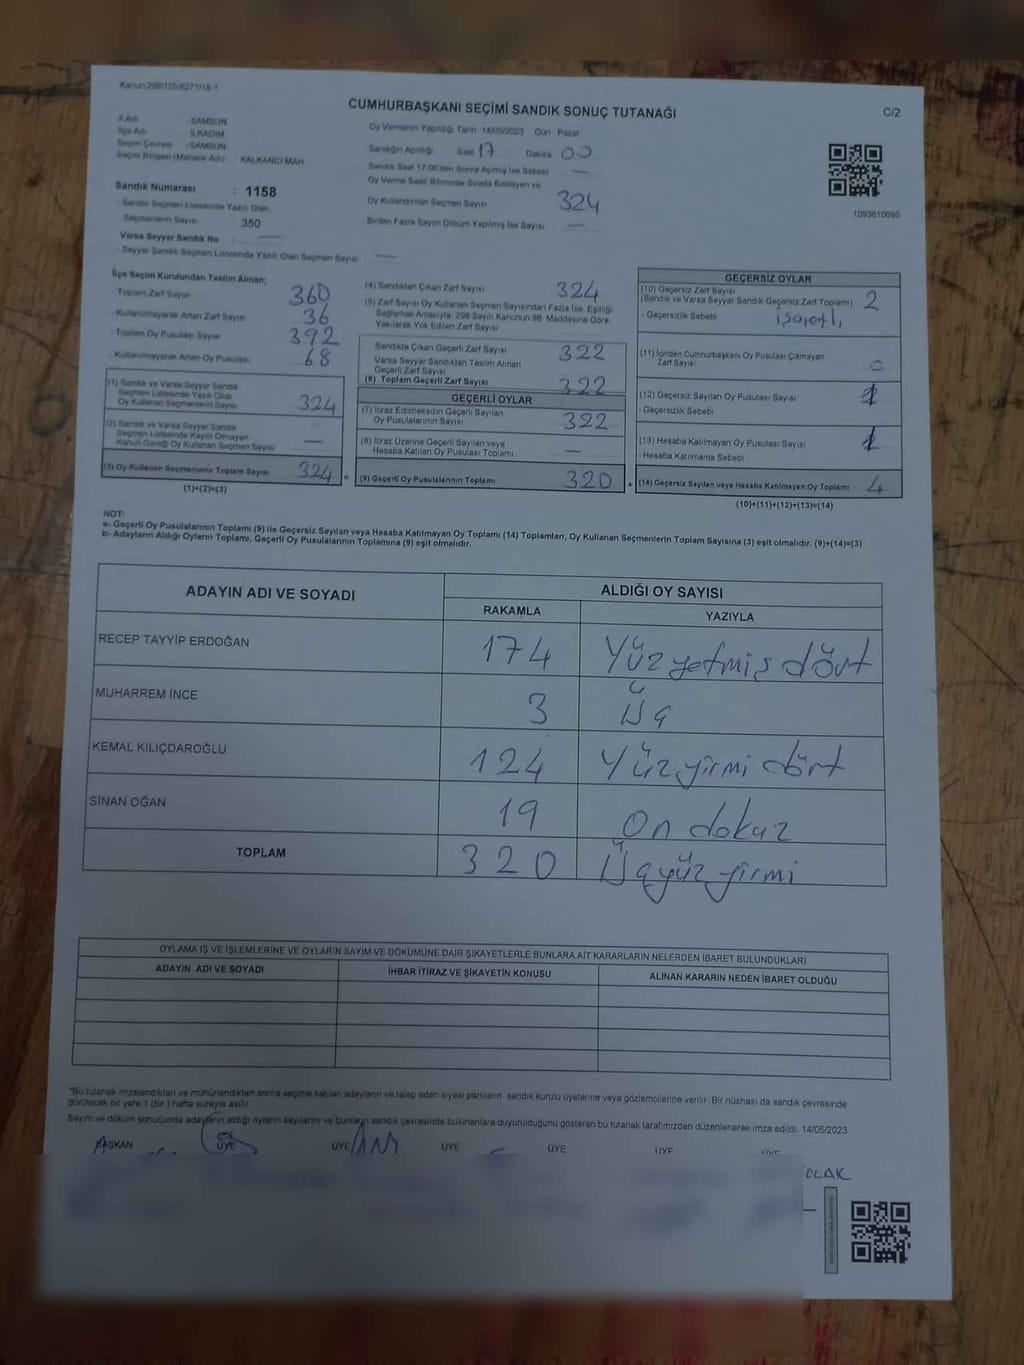 Kanun:298/105;6271/18-1
CUMHURBAŞKANI SEÇİMİ SANDIK SONUÇ TUTANAĞI
C/2
İl Adı : SAMSUN
İlçe Adı : İLKADIM
Seçim Çevresi : SAMSUN
Seçim Bölgesi (Mahalle Adı) KALKANCI MAH.
Sandık Numarası : 1158
- Sandık Seçmen Listesinde Yazılı Olan
Seçmenlerin Sayısı 350
Varsa Seyyar Sandık No : —
- Seyyar Sandık Seçmen Listesinde Yazılı Olan Seçmen Sayısı —
Oy Vermenin Yapıldığı Tarih 14/05/2023 Gün Pazar
Sandığın Açıldığı Saat 17 Dakika 00
Sandık Saat 17:00'den Sonra Açılmış İse Sebebi —
Oy Verme Saati Bitiminde Sırada Bekleyen ve
Oy Kullandırılan Seçmen Sayısı 324
Birden Fazla Sayım Döküm Yapılmış İse Sayısı —
1093610695
İlçe Seçim Kurulundan Teslim Alınan;
- Toplam Zarf Sayısı 360
- Kullanılmayarak Artan Zarf Sayısı 36
- Toplam Oy Pusulası Sayısı 392
- Kullanılmayarak Artan Oy Pusulası 68
(1) Sandık ve Varsa Seyyar Sandık
Seçmen Listesinde Yazılı Olup
Oy Kullanan Seçmenlerin Sayısı 324
(2) Sandık ve Varsa Seyyar Sandık
Seçmen Listesinde Kayıtlı Olmayan
Kanun Gereği Oy Kullanan Seçmen Sayısı —
(3) Oy Kullanan Seçmenlerin Toplam Sayısı 324 =
(1)+(2)=(3)
(4) Sandıktan Çıkan Zarf Sayısı 324
(5) Zarf Sayısı Oy Kullanan Seçmen Sayısından Fazla İse, Eşitliği
Sağlamak Amacıyla, 298 Sayılı Kanunun 98. Maddesine Göre
Yakılarak Yok Edilen Zarf Sayısı
Sandıkta Çıkan Geçerli Zarf Sayısı 322
Varsa Seyyar Sandıktan Teslim Alınan
Geçerli Zarf Sayısı
(6) Toplam Geçerli Zarf Sayısı 322
GEÇERLİ OYLAR
(7) İtiraz Edilmeksizin Geçerli Sayılan
Oy Pusulalarının Sayısı 322
(8) İtiraz Üzerine Geçerli Sayılan veya
Hesaba Katılan Oy Pusulası Toplamı —
(9) Geçerli Oy Pusulalarının Toplamı 320 +
GEÇERSİZ OYLAR
(10) Geçersiz Zarf Sayısı
(Sandık ve Varsa Seyyar Sandık Geçersiz Zarf Toplamı) 2
- Geçersizlik Sebebi işaretli
(11) İçinden Cumhurbaşkanı Oy Pusulası Çıkmayan
Zarf Sayısı 0
(12) Geçersiz Sayılan Oy Pusulası Sayısı 1
- Geçersizlik Sebebi
(13) Hesaba Katılmayan Oy Pusulası Sayısı 1
- Hesaba Katılmama Sebebi
(14) Geçersiz Sayılan veya Hesaba Katılmayan Oy Toplamı 4
(10)+(11)+(12)+(13)=(14)
NOT:
a- Geçerli Oy Pusulalarının Toplamı (9) ile Geçersiz Sayılan veya Hesaba Katılmayan Oy Toplamı (14) Toplamları, Oy Kullanan Seçmenlerin Toplam Sayısına (3) eşit olmalıdır. (9)+(14)=(3)
b- Adayların Aldığı Oyların Toplamı, Geçerli Oy Pusulalarının Toplamına (9) eşit olmalıdır.
ADAYIN ADI VE SOYADI ALDIĞI OY SAYISI
RAKAMLA YAZIYLA
RECEP TAYYİP ERDOĞAN 174 Yüz yetmiş dört
MUHARREM İNCE 3 Üç
KEMAL KILIÇDAROĞLU 124 Yüz yirmi dört
SİNAN OĞAN 19 On dokuz
TOPLAM 320 Üçyüz yirmi
OYLAMA İŞ VE İŞLEMLERİNE VE OYLARIN SAYIM VE DÖKÜMÜNE DAİR ŞİKAYETLERLE BUNLARA AİT KARARLARIN NELERDEN İBARET BULUNDUKLARI
ADAYIN ADI VE SOYADI İHBAR İTİRAZ VE ŞİKAYETİN KONUSU ALINAN KARARIN NEDEN İBARET OLDUĞU
"Bu tutanak imzalandıktan ve mühürlendikten sonra seçime katılan adayların ve talep eden siyasi partilerin sandık kurulu üyelerine veya gözlemcilerine verilir. Bir nüshası da sandık çevresinde
görülecek bir yere 1 (bir ) hafta süreyle asılır.
Sayım ve döküm sonucunda adayların aldığı oyların sayılarını ve bunların sandık çevresinde bulunanlara duyurulduğunu gösteren bu tutanak tarafımızdan düzenlenerek imza edildi. 14/05/2023
BAŞKAN ÜYE ÜYE ÜYE ÜYE ÜYE ÜYE
OLAK